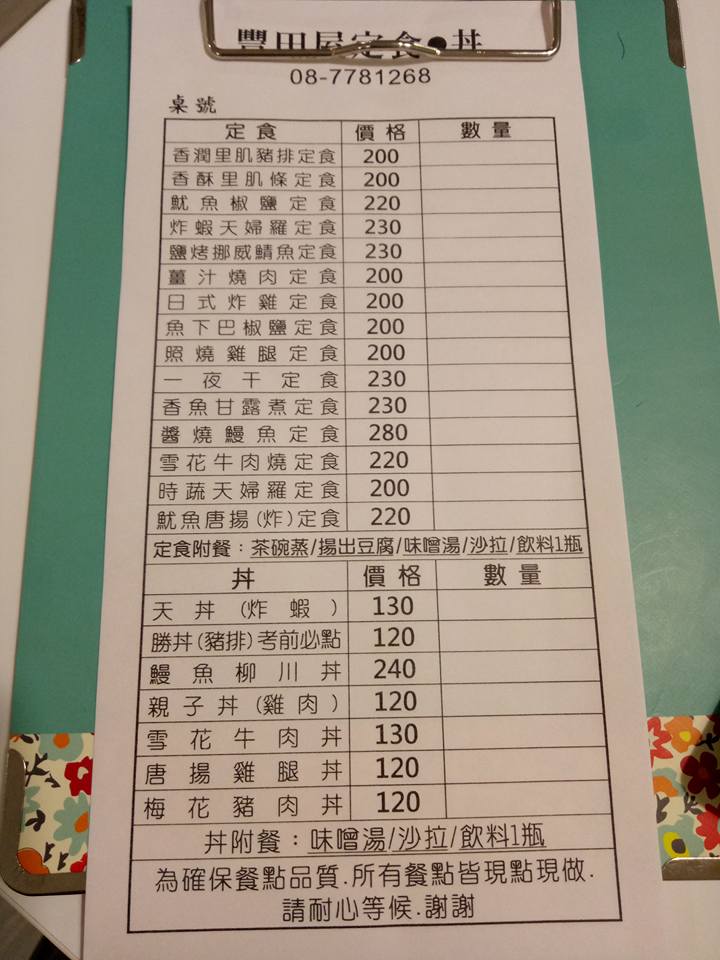 豐田屋定食●丼
08-7781268
桌號
定食 價格 數量
香潤里肌豬排定食 200
香酥里肌條定食 200
魷魚椒鹽定食 220
炸蝦天婦羅定食 230
鹽烤挪威鯖魚定食 230
薑汁燒肉定食 200
日式炸雞定食 200
魚下巴椒鹽定食 200
照燒雞腿定食 200
一夜干定食 230
香魚甘露煮定食 230
醬燒鰻魚定食 280
雪花牛肉燒定食 220
時蔬天婦羅定食 200
魷魚唐揚(炸)定食 220
定食附餐：茶碗蒸/揚出豆腐/味噌湯/沙拉/飲料1瓶
丼 價格 數量
天丼(炸蝦) 130
勝丼(豬排)考前必點 120
鰻魚柳川丼 240
親子丼(雞肉) 120
雪花牛肉丼 130
唐揚雞腿丼 120
梅花豬肉丼 120
丼附餐：味噌湯/沙拉/飲料1瓶
為確保餐點品質.所有餐點皆現點現做.
請耐心等候.謝謝